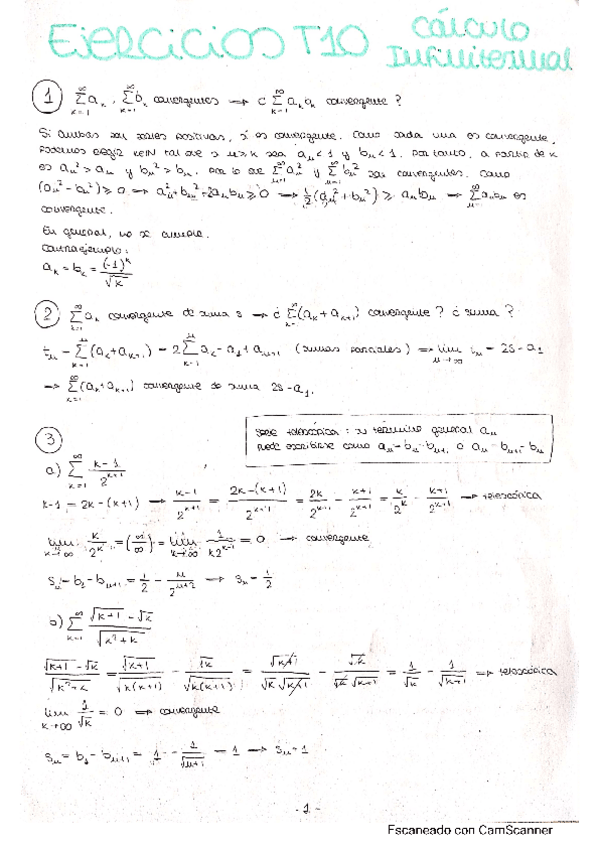 Ejercicios T10 Cálculo Infinitesimal
① \sum_{k=1}^{\infty} a_k, \sum_{k=1}^{\infty} b_k convergentes → ¿ \sum_{k=1}^{\infty} a_k b_k convergente ?
Si ambas son series positivas, sí es convergente. Como cada una es convergente,
podemos elegir k∈ℕ tal que si n>k sea a_n<1 y b_n<1. Por tanto, a partir de k
es a_n²>a_n y b_n²>b_n, por lo que \sum_{n=1}^{\infty} a_n² y \sum_{n=1}^{\infty} b_n² son convergentes. Como
(a_n²-b_n²)≥0 → a_n²+b_n²-2a_nb_n≥0 → \frac{1}{2}(a_n²+b_n²)≥ a_nb_n → \sum_{n=1}^{\infty} a_nb_n es
convergente.
En general, no se cumple.
Contraejemplo:
a_k = b_k = \frac{(-1)^k}{\sqrt{k}}
② \sum_{k=1}^{\infty} a_k convergente de suma s → ¿ \sum_{k=1}^{\infty} (a_k+a_{k+1}) convergente ? ¿ suma ?
t_n = \sum_{k=1}^{n} (a_k+a_{k+1}) = 2\sum_{k=1}^{n} a_k - a_1 + a_{n+1} (sumas parciales) → \lim_{n→∞} t_n = 2s-a_1
→ \sum_{k=1}^{\infty} (a_k+a_{k+1}) convergente de suma 2s-a_1.
③
Serie telescópica: su término general a_n
puede escribirse como a_n=b_n-b_{n+1} o a_n=b_{n+1}-b_n
a) \sum_{k=1}^{\infty} \frac{k-1}{2^{k+1}}
k-1 = 2k-(k+1) → \frac{k-1}{2^{k+1}} = \frac{2k-(k+1)}{2^{k+1}} = \frac{2k}{2^{k+1}} - \frac{k+1}{2^{k+1}} = \frac{k}{2^k} - \frac{k+1}{2^{k+1}} → telescópica
\lim_{k→∞} \frac{k}{2^k} = (\frac{∞}{∞}) = \lim_{k→∞} \frac{1}{k2^{k-1}} = 0 → convergente
S_n = b_1 - b_{n+1} = \frac{1}{2} - \frac{n}{2^{n+2}} → S_n = \frac{1}{2}
b) \sum_{k=1}^{\infty} \frac{\sqrt{k+1}-\sqrt{k}}{\sqrt{k²+k}}
\frac{\sqrt{k+1}-\sqrt{k}}{\sqrt{k²+k}} = \frac{\sqrt{k+1}}{\sqrt{k(k+1)}} - \frac{\sqrt{k}}{\sqrt{k(k+1)}} = \frac{\sqrt{k+1}}{\sqrt{k}\sqrt{k+1}} - \frac{\sqrt{k}}{\sqrt{k}\sqrt{k+1}} = \frac{1}{\sqrt{k}} - \frac{1}{\sqrt{k+1}} → telescópica
\lim_{k→∞} \frac{1}{\sqrt{k}} = 0 → convergente
S_n = b_1 - b_{n+1} = 1 - \frac{1}{\sqrt{n+1}} = 1 → S_n = 1
- 1 -
Escaneado con CamScanner